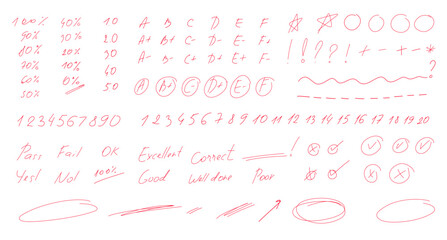 100% 40% 10 A B C D E F
90% 30% 20 A+ B+ C+ D+ E+ F+ ! ! ? ? ! + - + - *
80% 20% 30 A- B- C- D+ E- F- ?
70% 10% 40
60% 0% 50 A B+ C D+ E F
50%
1 2 3 4 5 6 7 8 9 0 1 2 3 4 5 6 7 8 9 10 11 12 13 14 15 16 17 18 19 20
Pass Fail OK Excellent Correct !
Yes! No! 100% Good Well done Poor